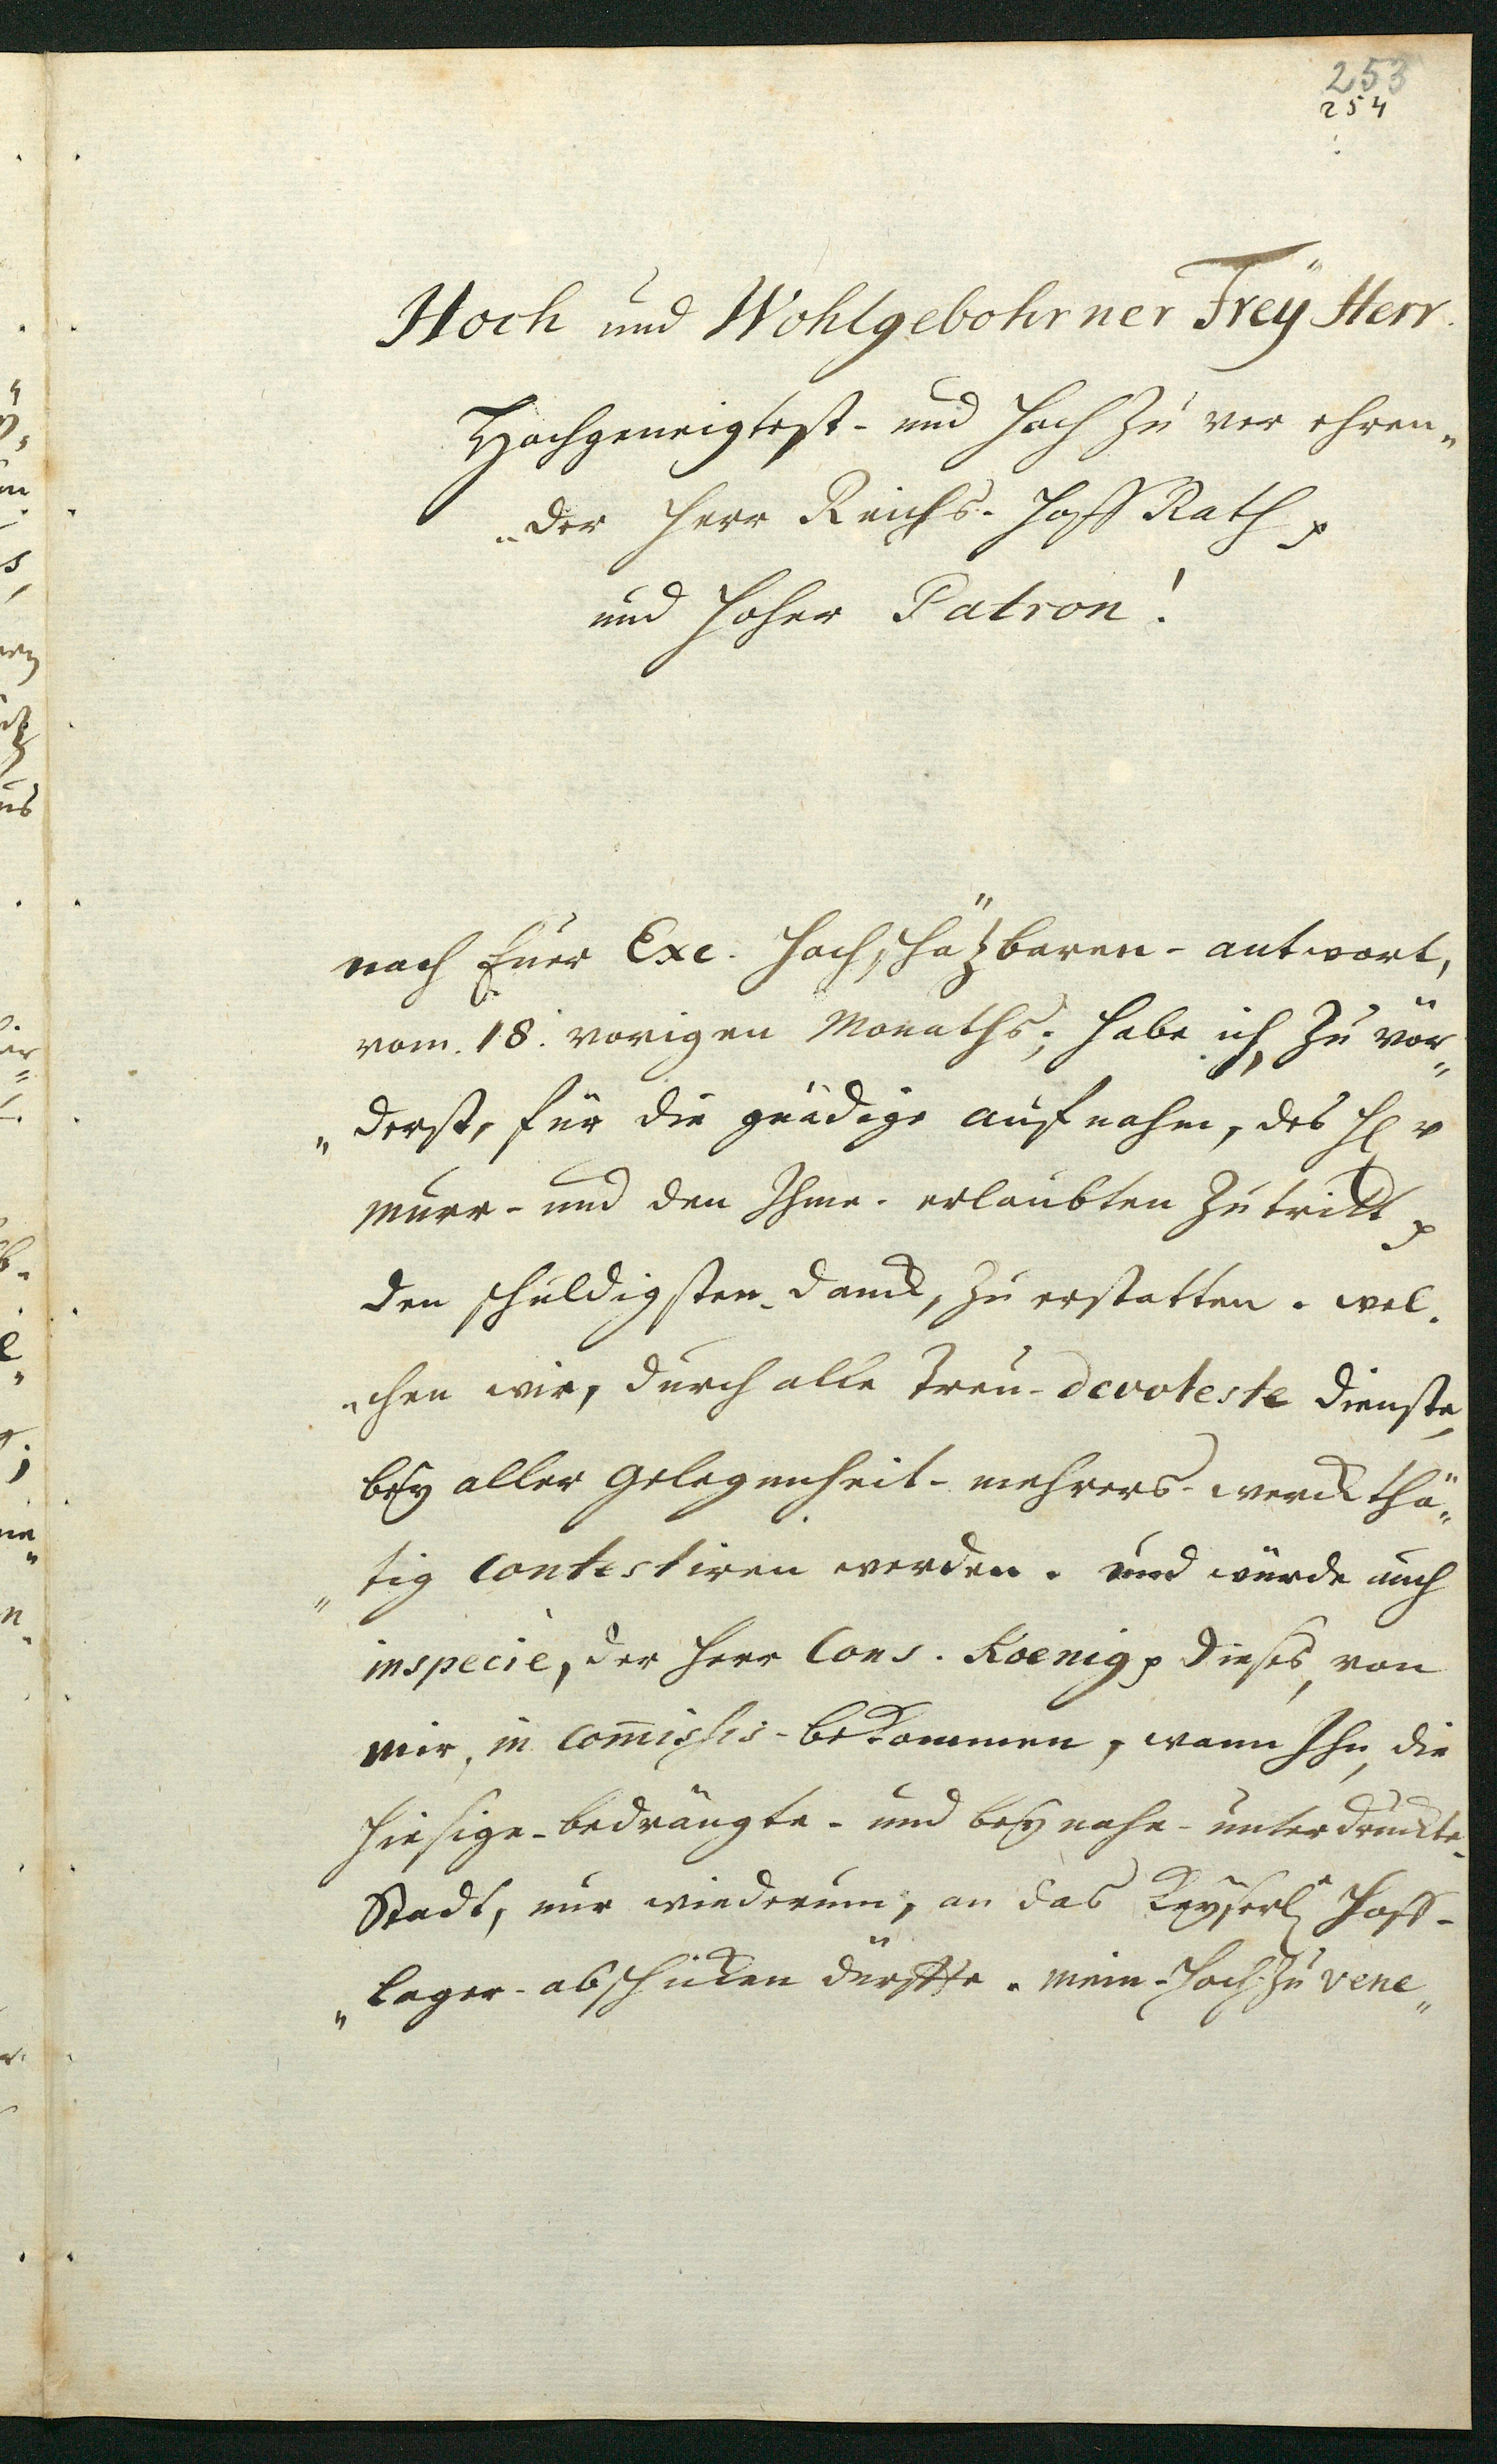 253
254
Hoch und Wohlgebohrner Freÿ Herr.
Hochgeneigtest- und Hoch zu ver ehren„
„der Herr Reichs- Hoff Rath p
und Hoher Patron!
nach Euer Exc. Hochschäzbaren- antwort,
vom. 18. vorigen Monaths; habe ich, zu vör„
„derst, für die gnädige aufnahm, des H v
Murr- und den Ihme- erlaubten Zutritt p
den schuldigsten- danck, zu erstatten. wel„
„chen wir, durch alle Treu- devoteste Dienste,
beÿ aller gelegenheit- mehrers- werckthä„
„tig contestiren werden. und würde auch
inspeciè, der Herr Cons. Koenig p dieses, von
mir, in com̄issis- bekommen, wann Ihn, die
hiesige- bedrängte- und beÿ nahe- unterdruckte-
Stadt, nur wiederum, an das Keÿserl Hoff-
„lager- abschicken dürffte. mein- Hoch zu vene„